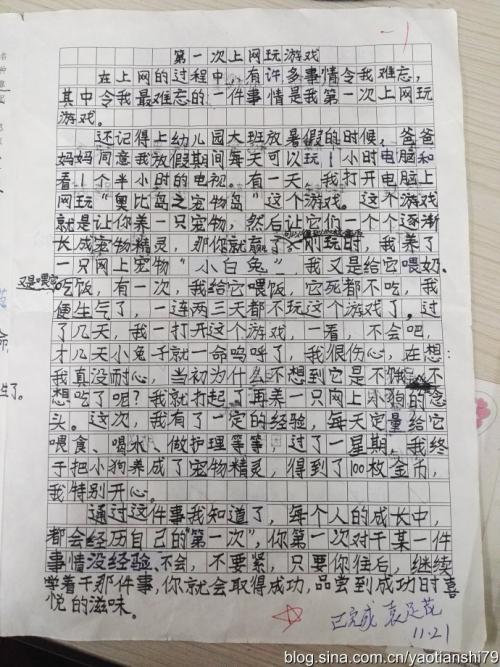 第一次上网玩游戏
在上网的过程中,有许多事情令我难忘,
其中令我最难忘的一件事情是我第一次上网玩
游戏。
还记得上幼儿园大班放暑假的时候,爸爸
妈妈同意我放假期间每天可以玩1小时电脑和
看1个半小时的电视。有一天,我打开电脑上
网玩“奥比岛之宠物岛”这个游戏。这个游戏
就是让你养一只宠物,然后让它们一个个逐渐
长成宠物精灵,那你就赢了,刚玩时,我养了
一只网上宠物“小白兔”,我又是给它喂奶,
又是喂它
吃饭,有一次,我给它喂饭,它死都不吃,我
便生气了,一连两三天都不玩这个游戏了。过
了几天,我一打开这个游戏,一看,不会吧,
才几天小兔子就一命呜呼了,我很伤心,在想:
我真没耐心,当初为什么不想到它是不饿,不
想吃了呢?我就打起了再养一只网上小狗的念
头。这次,我有了一定的经验,每天定量给它
喂食、喝水、做护理等等,过了一星期,我终
于把小狗养成了宠物精灵,得到了100枚金币,
我特别开心。
通过这件事我知道了,每个人的成长中,
都会经历自己的“第一次”,你第一次对于某一件
事情没经验、不会,不要紧,只要你往后,继续
学着干那件事,你就会取得成功,品尝到成功时喜
悦的滋味。
已完成
11.21
blog.sina.com.cn/yaotianshi79